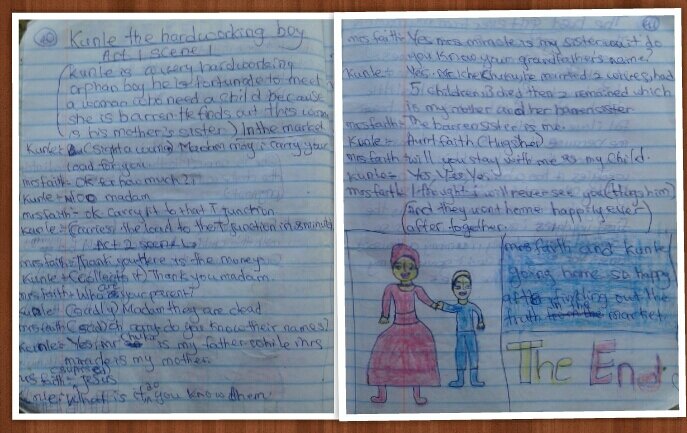 40
Kunle the hardworking boy
Act 1 scene 1
(Kunle is a very hardworking
orphan boy he is fortunate to meet
a woman who need a child because
she is barren. He finds out this woman
is his mother's sister) In the market
Kunle:- (sights a woman) Madam may i carry your
load for you.
mrs faith:- Ok for how much?
Kunle:- N100 madam
mrs faith:- ok carry it to that T junction.
Kunle:- (carries the load to the T junction in 8 minutes)
Act 2 scene
mrs faith:- Thank you there is the money.
Kunle:- (collects it) Thank you madam.
mrs faith:- Who are your parent?
Kunle:- (sadly) Madam they are dead.
mrs faith:- (sad) Oh sorry do you know their names?
Kunle:- Yes, mr is my father while mrs
miracle is my mother.
mrs faith:- (surprised) Jesus
Kunle:- What is it do you know them.
41
mrs faith:- Yes mrs miracle is my sister wait do
you know your grandfather's name?
Kunle:- Yes. he married 2 wives, had
5 children 3 died then 2 remained which
is my mother and her barren sister.
mrs faith:- The barren sister is me.
Kunle:- Aunt faith (Hugs her)
mrs faith:- will you stay with me as my child.
Kunle:- Yes, Yes, Yes.
mrs faith:- I thought i will never see you (Hugs him)
(And they went home happily ever
after together.)
mrs faith and Kunle
going home so happy
after finding out the
truth in the market
The End